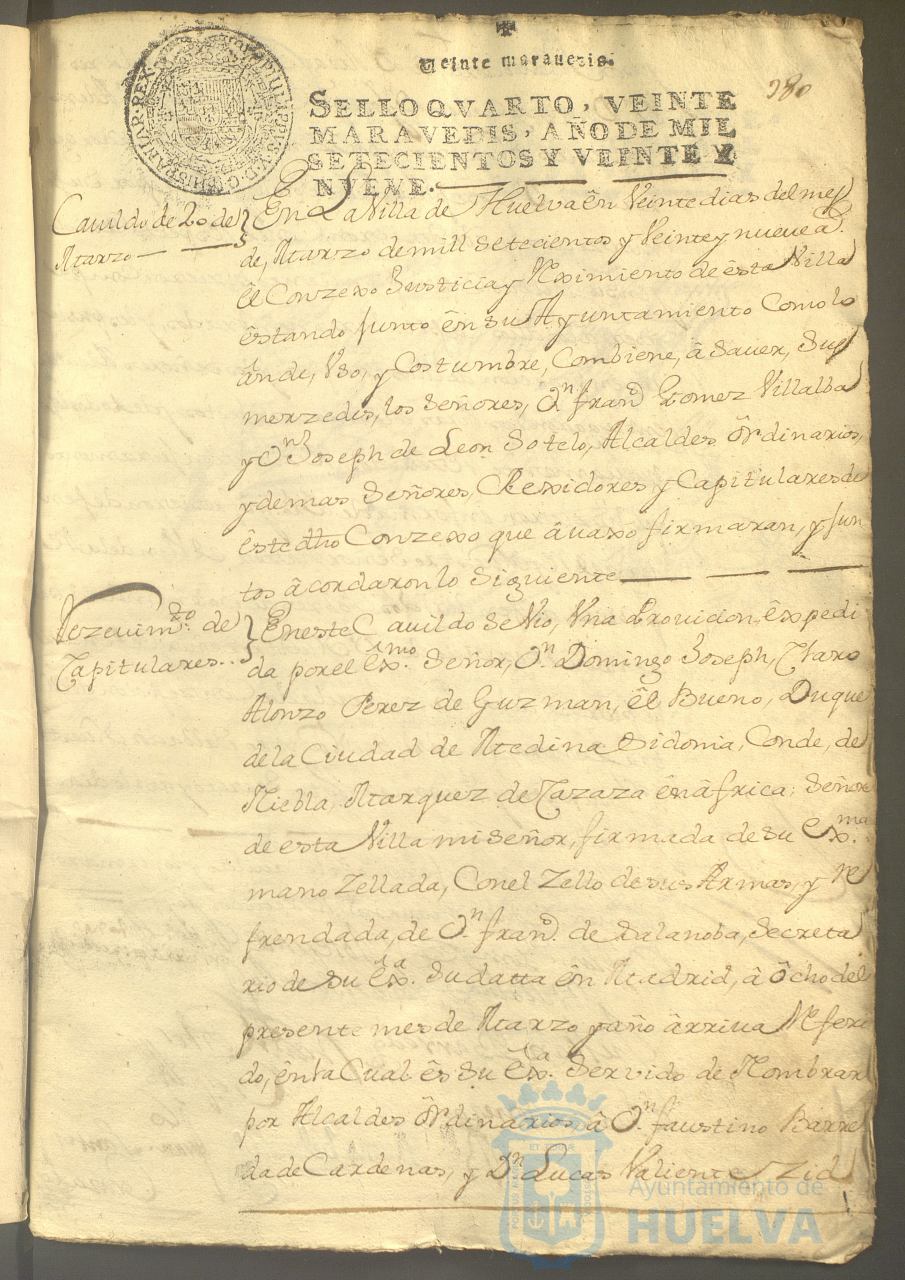 Veinte maravedis.
380
SELLO QVARTO, VEINTE
MARAVEDIS, AÑO DE MIL
SETECIENTOS Y VEINTE Y
NVEVE.
Cauildo de 20 de
Marzo
En La Villa de Huelva ên Veinte dias del mes
de, Marzo de mill setecientos y Veinte y nueve a.ˢ
êl Conzexo Justicia y Reximiento de êsta Villa
êstando junto ên su Ayuntamiento Como lo
ânde, Vso, y Costumbre, Combiene, â saver, Sus
merzedis, los señores, Dⁿ franᶜᵒ Gomez Villalba
y Dⁿ Joseph de Leon Sotelo, Alcaldes ôrdinarios,
y demas señores, Rexidores y Capitulares de
êste dho Conzexo que âvaxo firmaran, y jun
tos âcordaron lo siguiente
Rezevimᵗᵒ de
Capitulares..
En este Cauildo se Vio, Vna Provicion, êxpedi
da por el Êxᵐᵒ. Señor, Dⁿ Domingo Joseph, Claro
Alonzo Perez de Guzman, êl Bueno, Duque
de la Ciudad de Medina Sidonia, Conde, de
Niebla, Marquez de Cazaza ên âfrica; Señor
de esta Villa mi señor, firmada de su Exᵐᵃ.
mano Zellada, Con el Zello de sus Armas, y re
frendada, de Dⁿ franᶜᵒ. de Salanoba, Secreta
rio de su Êxᵃ. su datta ên Madrid, â ôcho del
presente mes de Marzo y año ârriva Refer
do, ên la Cual ês su Êxᵃ. Servido de Nombrar
por Alcaldes ôrdinarios â Dⁿ. faustino Barre
da de Cardenas, y Dⁿ Lucas Valiente Zid
Ayuntamiento de
HUELVA